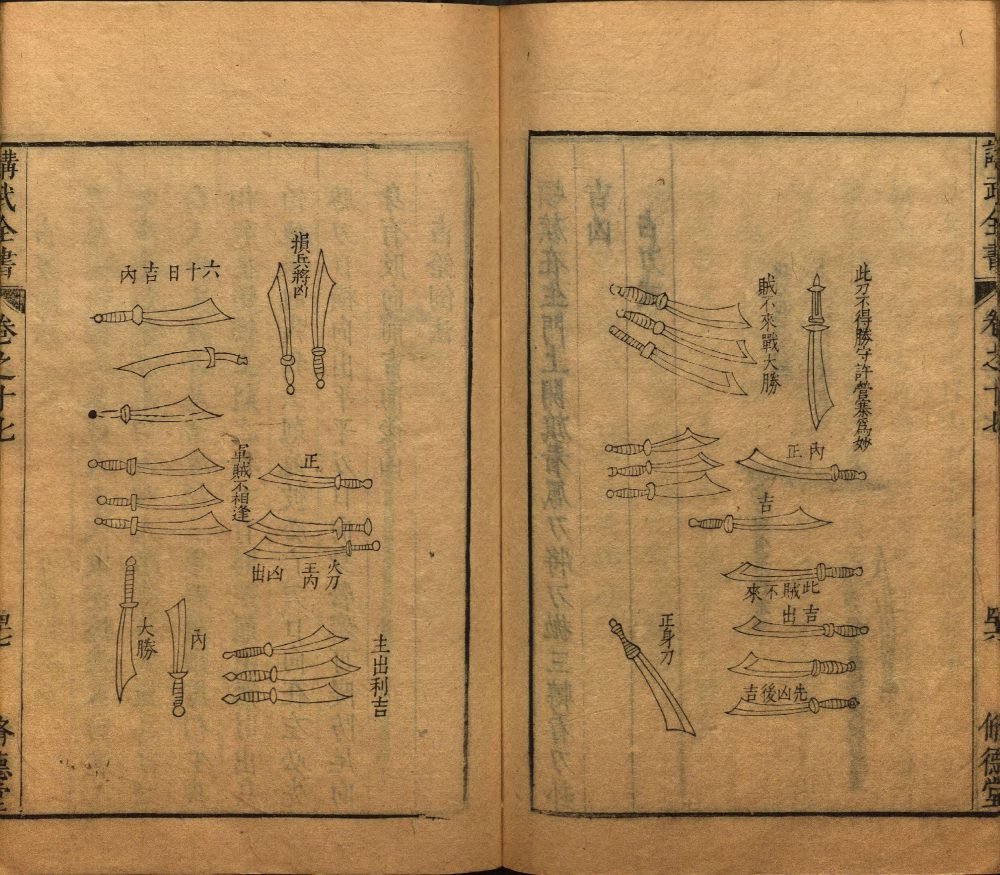 講武全書
卷之十七
脩德堂
此刀不得勝守許營寨為妙
賊不來戰大勝
內正
吉
此賊不來
吉出
先凶後吉
正身刀
損兵將凶
六十日吉內
正
軍賊不相逢
火刀
王內
凶出
主出利吉
內
大勝
講武全書
卷之十七
脩德堂